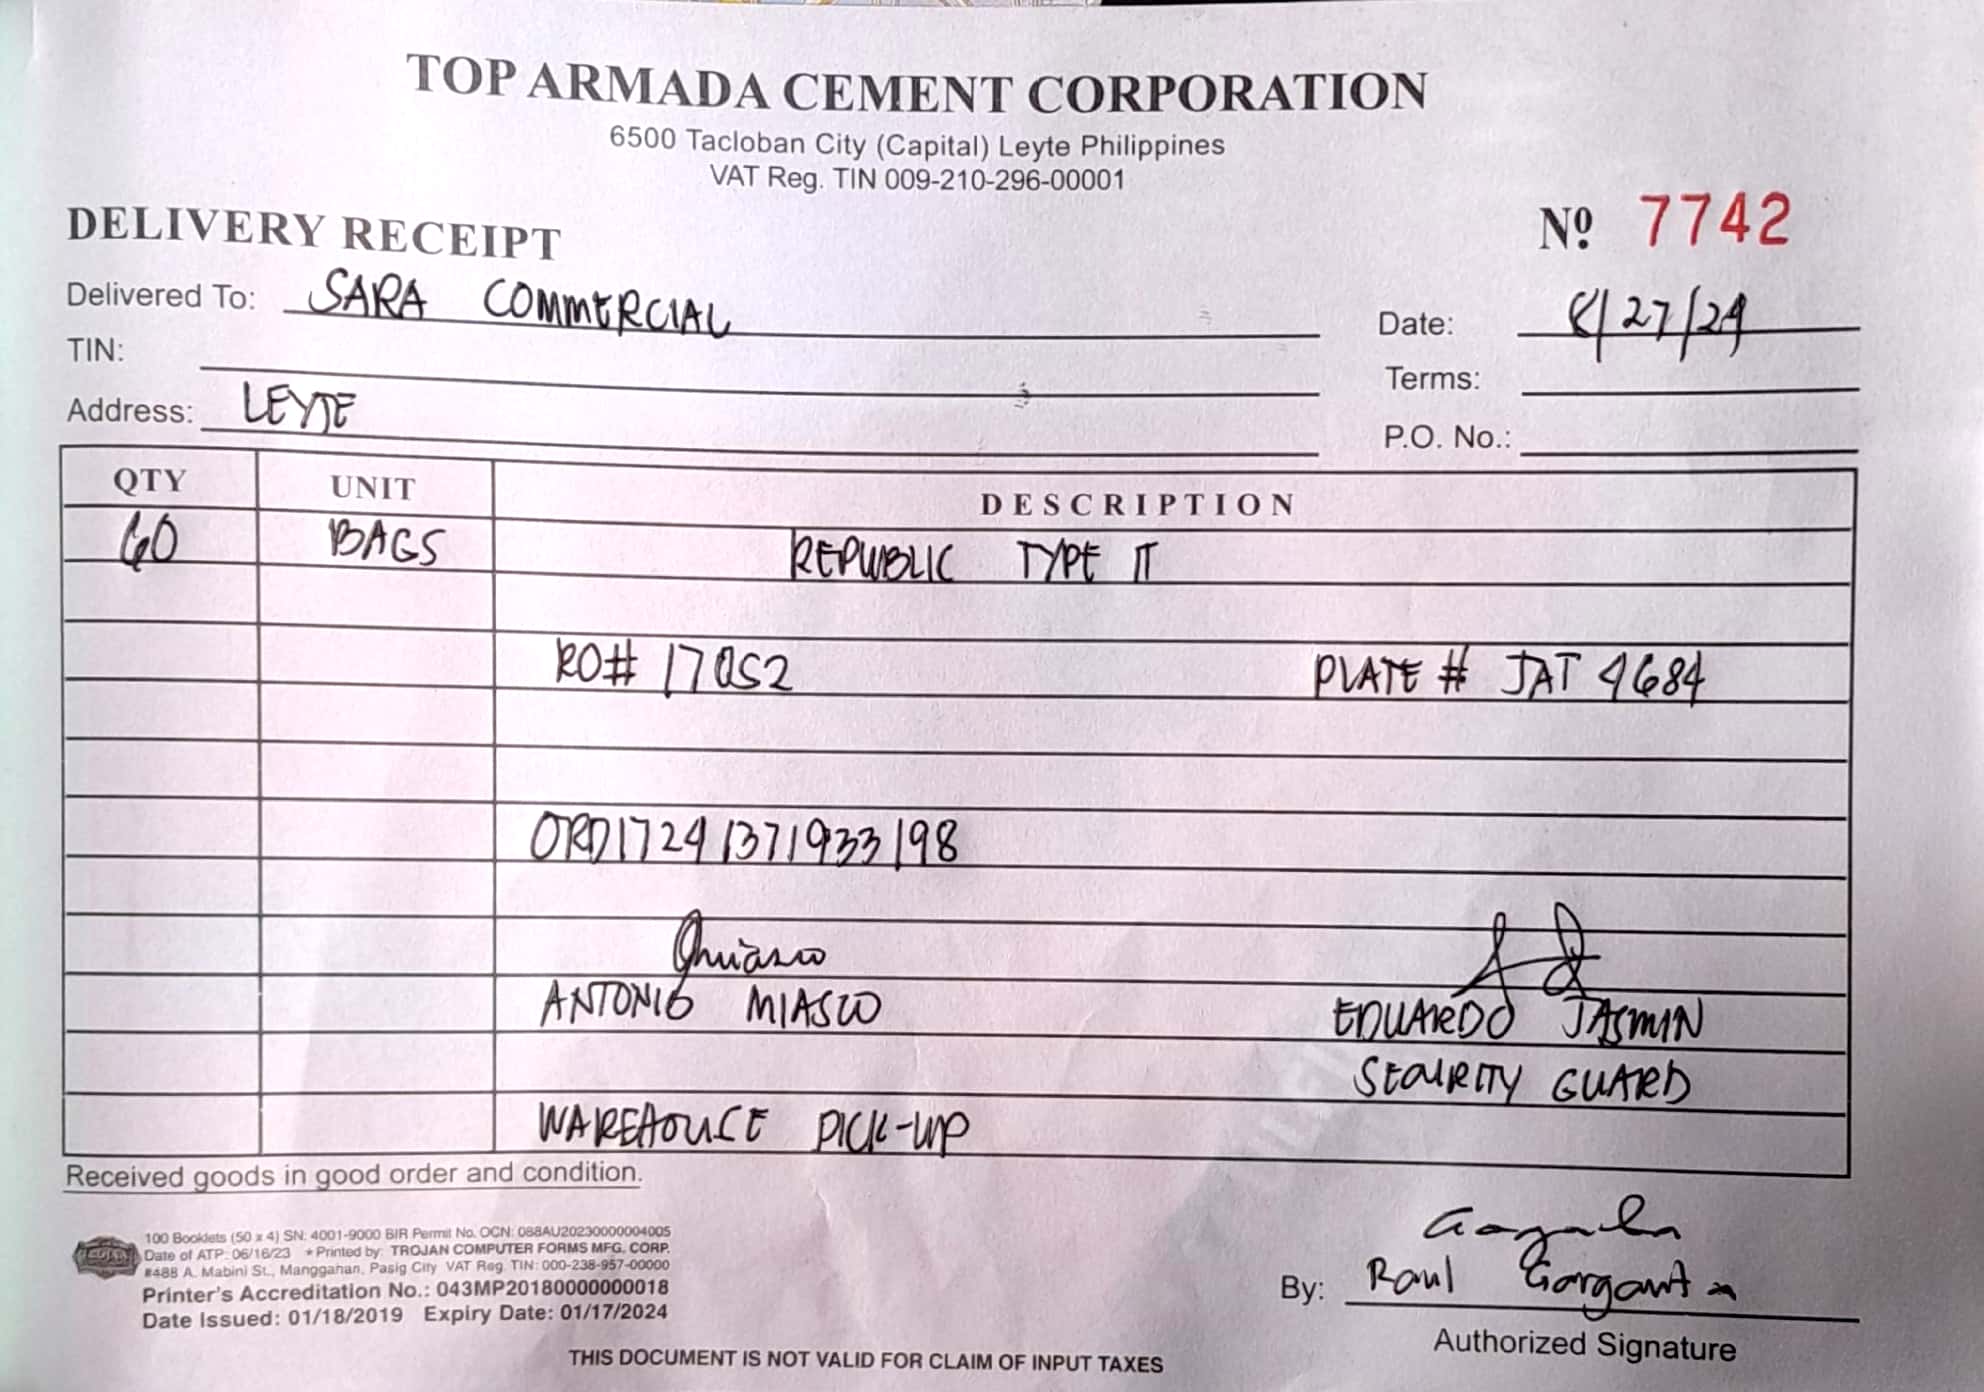 TOP ARMADA CEMENT CORPORATION
6500 Tacloban City (Capital) Leyte Philippines
VAT Reg. TIN 009-210-296-00001
DELIVERY RECEIPT
Nº 7742
Delivered To: SARA COMMERCIAL
Date: 8/27/24
TIN:
Terms:
Address: LEYTE
P.O. No.:
QTY UNIT DESCRIPTION
60 BAGS REPUBLIC TYPE II
RO# 17052 PLATE # JAT 4684
ORD17241371933198
ANTONIO MIASCO EDUARDO JASMIN
SECURITY GUARD
WAREHOUSE PICK-UP
Received goods in good order and condition.
100 Booklets (50 x 4) SN: 4001-9000 BIR Permit No. OCN: 088AU20230000004005
Date of ATP: 06/16/23 * Printed by: TROJAN COMPUTER FORMS MFG. CORP.
#488 A. Mabini St., Manggahan, Pasig City VAT Reg. TIN: 000-238-957-00000
Printer's Accreditation No.: 043MP20180000000018
Date Issued: 01/18/2019 Expiry Date: 01/17/2024
By: Raul Gorganta
Authorized Signature
THIS DOCUMENT IS NOT VALID FOR CLAIM OF INPUT TAXES